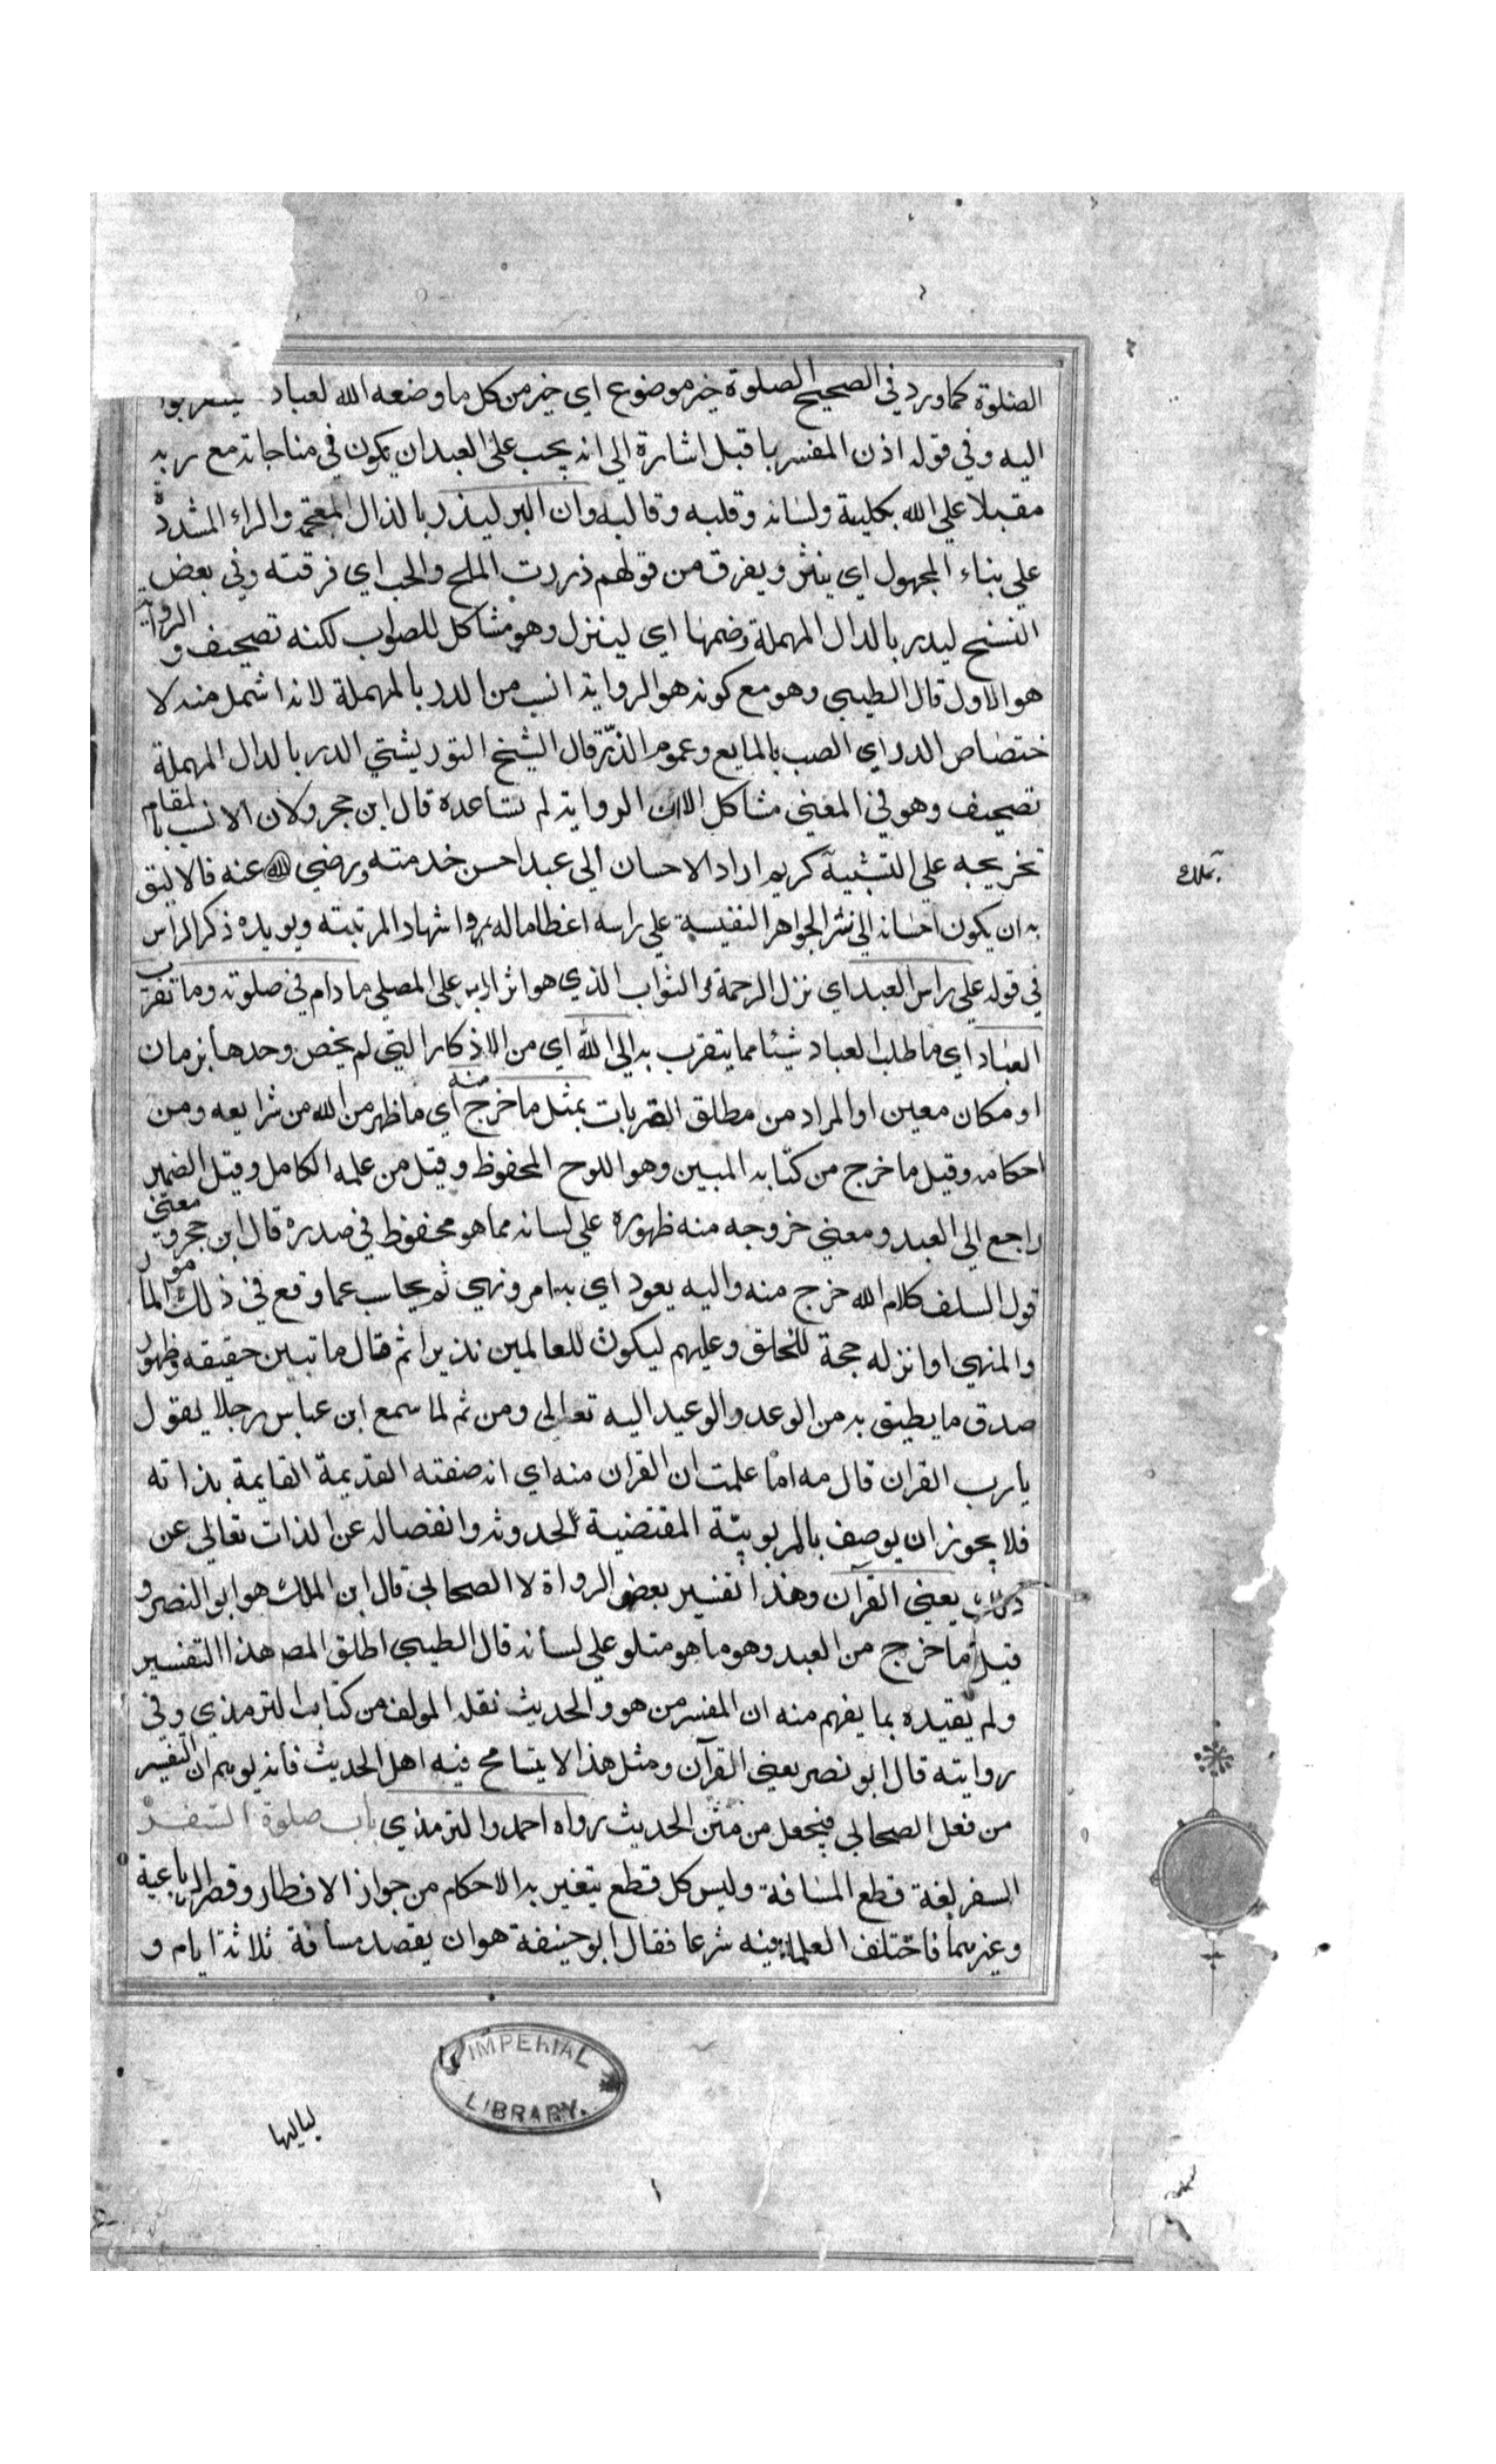 الصلوة كما ورد في الصحيح الصلوة خير موضوع اي خير من كل ما وضعه الله لعباد ليتقربوا
اليه وفي قوله اذن المفسر باقبل اشارة الى انه يجب على العبد ان يكون في مناجاته مع ربه
مقبلا على الله بكليته ولسانه وقلبه وقالبه وان البر ليذر بالذال المعجمة والراء المشددة
على بناء المجهول اي ينثر ويفرق من قولهم ذررت الملح والحب اي فرقته وفي بعض
النسخ ليدر بالدال المهملة وضمها اي لينزل وهو مشاكل للصواب لكنه تصحيف والرواية
هو الاول قال الطيبي وهو مع كونه هو الرواية انسب من الدر بالمهملة لانه اشمل منه لا
ختصاص الدر اي الصب بالمايع وعموم الذر قال الشيخ التوربشتي الدر بالدال المهملة
تصحيف وهو في المعنى مشاكل الا ان الرواية لم تساعده قال ابن حجر ولان الانسب بالمقام
تخريجه على التشبيه كريم اراد الاحسان الى عبد احسن خدمته ورضي الله عنه فالاليق
به ان يكون احسانه الى نثر الجواهر النفيسة على راسه اعظاما له واشهاد المرتبته ويويده ذكر الراس
في قوله على راس العبد اي نزل الرحمة والثواب الذي هو اثر البر على المصلي ما دام في صلوته وما تقرب
العباد اي ما طلب العباد شيئا مما يتقرب به الى الله اي من الاذكار التي لم يخص وحدها بزمان
او مكان معين او المراد من مطلق القربات بمثل ما خرج منه اي ما ظهر من الله من شرايعه ومن
احكامه وقيل ما خرج من كتابه المبين وهو اللوح المحفوظ وقيل من علمه الكامل وقيل الضمير
راجع الى العبد ومعنى خروجه منه ظهوره على لسانه مما هو محفوظ في صدره قال ابن حجر ومعنى
قول السلف كلام الله خرج منه واليه يعود اي به امر ونهي ثم يحاسب عما وقع في ذلك المأمور
والمنهي او انزله حجة للخلق وعليهم ليكون للعالمين نذيرا ثم قال ما تبين حقيقه وظهور
صدق ما يطيق به من الوعد والوعيد اليه تعالى ومن ثم لما سمع ابن عباس رجلا يقول
يا رب القران قال مه اما علمت ان القران منه اي انه صفته القديمة القايمة بذاته
فلا يجوز ان يوصف بالمربوبية المقتضية لحدوثه وانفصاله عن الذات تعالى عن
ذلك يعني القرآن وهذا تفسير بعض الرواة لا الصحابي قال ابن الملك هو ابو النصر و
قيل ما خرج من العبد وهو ما هو متلو على لسانه قال الطيبي اطلق المص هذا التفسير
ولم يقيده بما يفهم منه ان المفسر من هو والحديث نقله المولف من كتاب الترمذي وفي
روايته قال ابو نصر يعني القرآن ومثل هذا لا يتسامح فيه اهل الحديث فانه يوهم ان التفسير
من فعل الصحابي فيجعل من متن الحديث رواه احمد والترمذي باب صلوة السفر
السفر لغة قطع المسافة وليس كل قطع يتغير به الاحكام من جواز الافطار وقصر الرباعية
وغيرهما فاختلف العلماء فيه شرعا فقال ابو حنيفة هو ان يقصد مسافة ثلاثة ايام و
IMPERIAL
LIBRARY.
لياليها